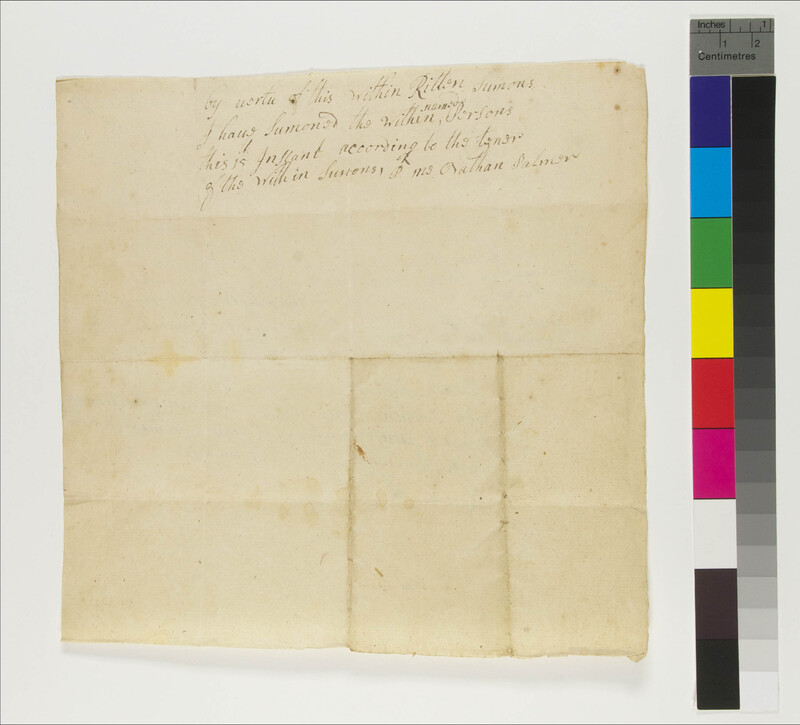 Inches 1
1 2
Centimetres
by uertu of this within Ritten Sumons
I haue Sumoned the within named Persons
this 15 Instant according to the tener
of the within Sumons, me Nathan Palmer